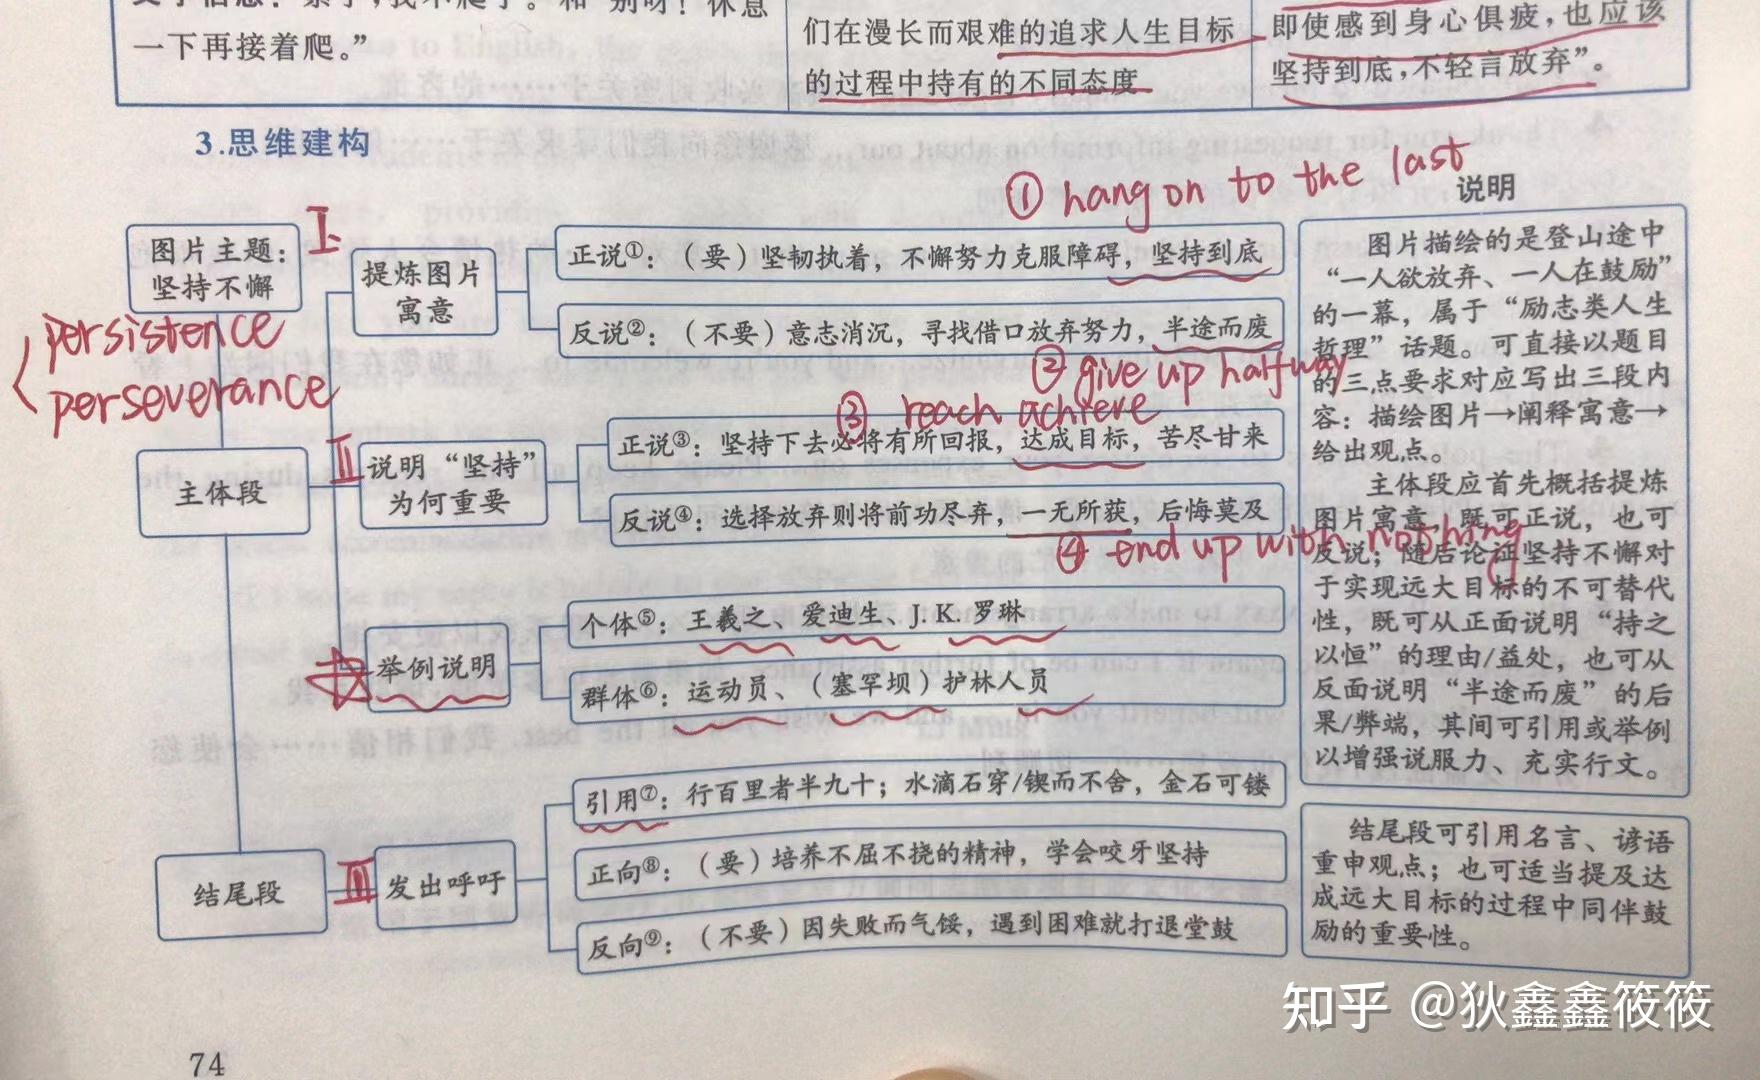 一下再接着爬。”
们在漫长而艰难的追求人生目标
的过程中持有的不同态度
即使感到身心俱疲，也应该
坚持到底，不轻言放弃”。
3.思维建构
① hang on to the last
说明
图片主题：
坚持不懈
I
提炼图片
寓意
正说①：（要）坚韧执着，不懈努力克服障碍，坚持到底
反说②：（不要）意志消沉，寻找借口放弃努力，半途而废
persistence
perseverance
② give up halfway
③ reach achieve
主体段
II
说明“坚持”
为何重要
正说③：坚持下去必将有所回报，达成目标，苦尽甘来
反说④：选择放弃则将前功尽弃，一无所获，后悔莫及
④ end up with nothing
举例说明
个体⑤：王羲之、爱迪生、J.K.罗琳
群体⑥：运动员、（塞罕坝）护林人员
结尾段
III
发出呼吁
引用⑦：行百里者半九十；水滴石穿/锲而不舍，金石可镂
正向⑧：（要）培养不屈不挠的精神，学会咬牙坚持
反向⑨：（不要）因失败而气馁，遇到困难就打退堂鼓
图片描绘的是登山途中
“一人欲放弃、一人在鼓励”
的一幕，属于“励志类人生
哲理”话题。可直接以题目
的三点要求对应写出三段内
容：描绘图片→阐释寓意→
给出观点。
主体段应首先概括提炼
图片寓意，既可正说，也可
反说；随后论证坚持不懈对
于实现远大目标的不可替代
性，既可从正面说明“持之
以恒”的理由/益处，也可从
反面说明“半途而废”的后
果/弊端，其间可引用或举例
以增强说服力、充实行文。
结尾段可引用名言、谚语
重申观点；也可适当提及达
成远大目标的过程中同伴鼓
励的重要性。
知乎 @狄鑫鑫筱筱
74